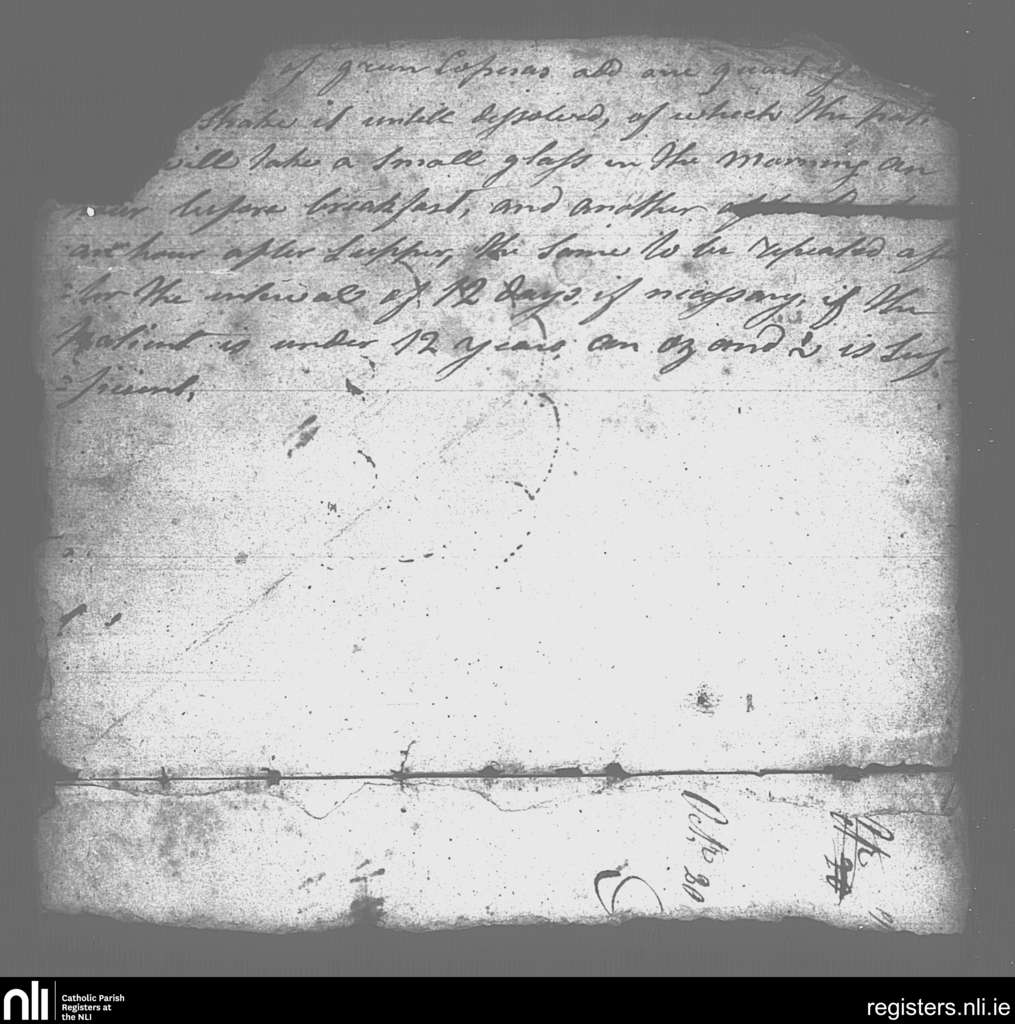 of green Coperas add one quart of
shake it untill desolved, of which the pat.
will take a small glass in the morning an
hour before breakfast, and another
an hour after supper, the same to be repeated af
ter the interval of 12 days if necessary, if the
Patient is under 12 years an oz and ½ is suf-
ficient,
Oct. 20
nli
Catholic Parish
Registers at
the NLI
registers.nli.ie